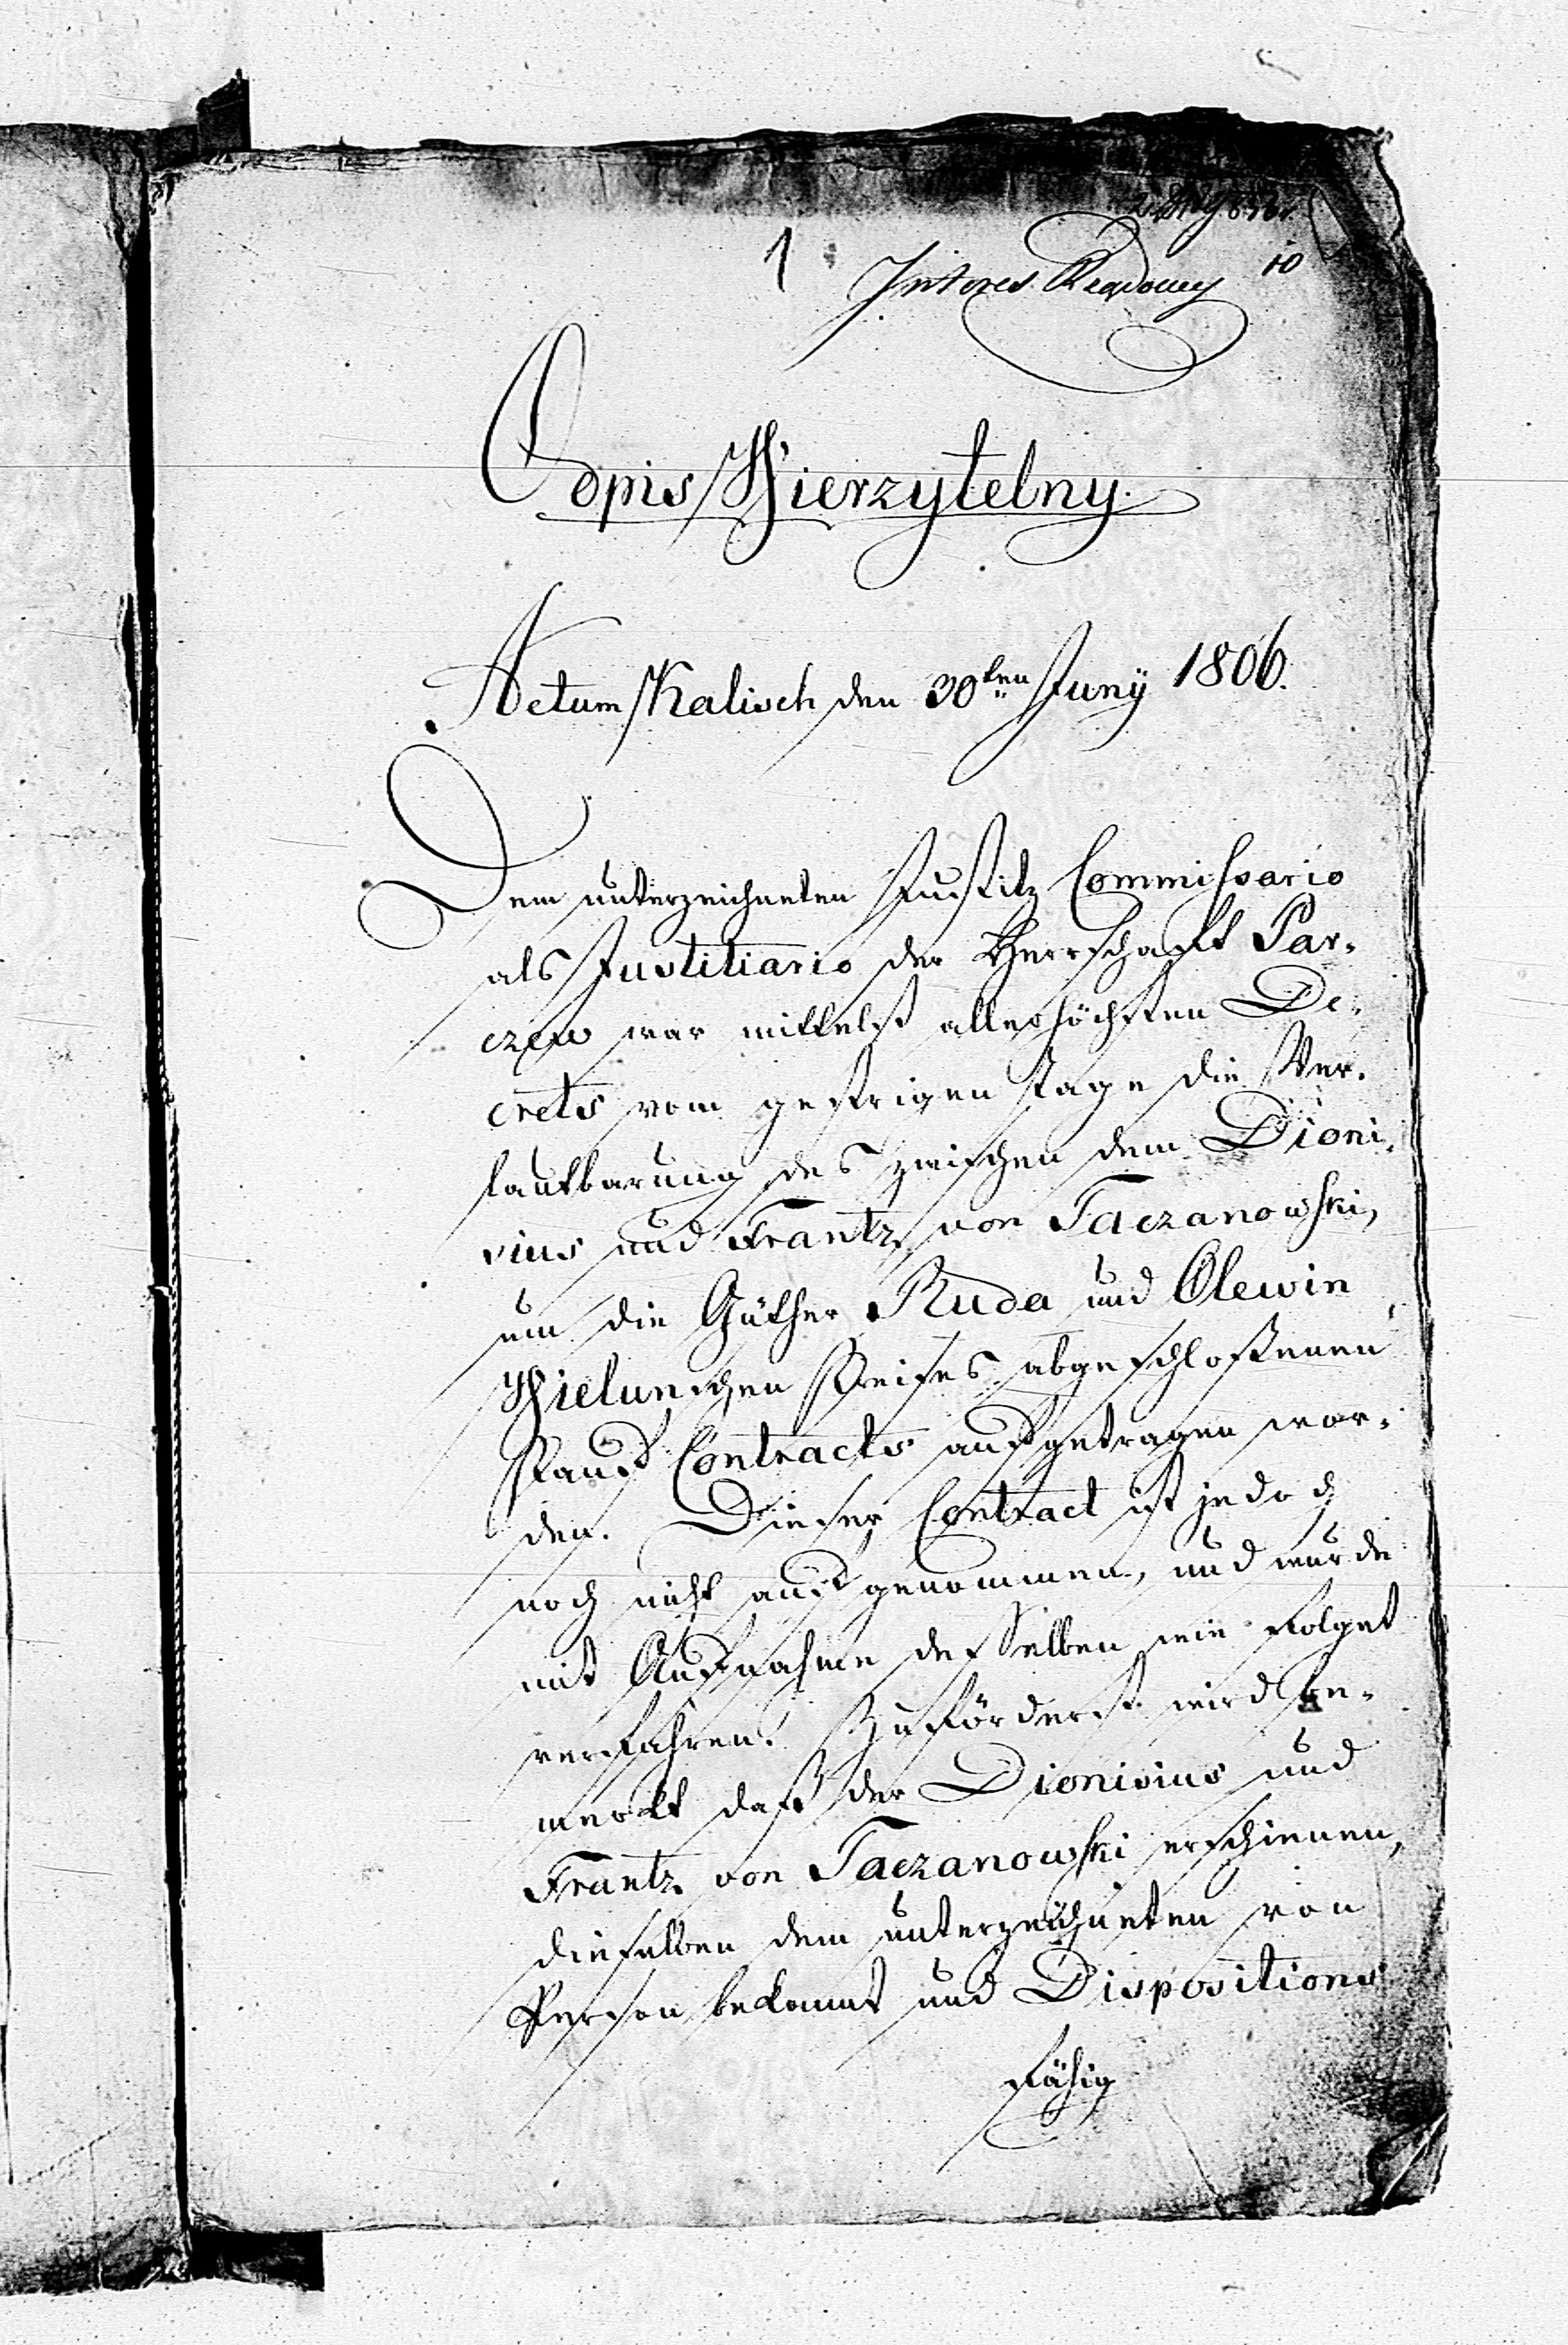 1
10
Interes Rządowy
Odpis Wierzytelny.
Actum Kalisch den 30ten Juny 1806.
Dem unterzeichneten Justitz Commissario
als Justitiario der Herrschaft Par-
czew war mittelst allerhöchsten De-
crets vom gestrigen Tage die Ver-
lautbarung des zwischen dem Dioni-
sius und Frantz von Taczanowski,
um die Güther Ruda und Olewin
Wielunschen Kreises abgeschloßenen
Kauf Contracts aufgetragen wor-
den. Dieser Contract ist jedoch
noch nicht aufgenommen, und wurde
mit Aufnahme desselben wie folget
verfahren. Zuförderst wird be-
merckt daß der Dionisius und
Frantz von Taczanowski erschienen,
dieselben dem unterzeichneten von
Person bekannt und Dispositions
fähig